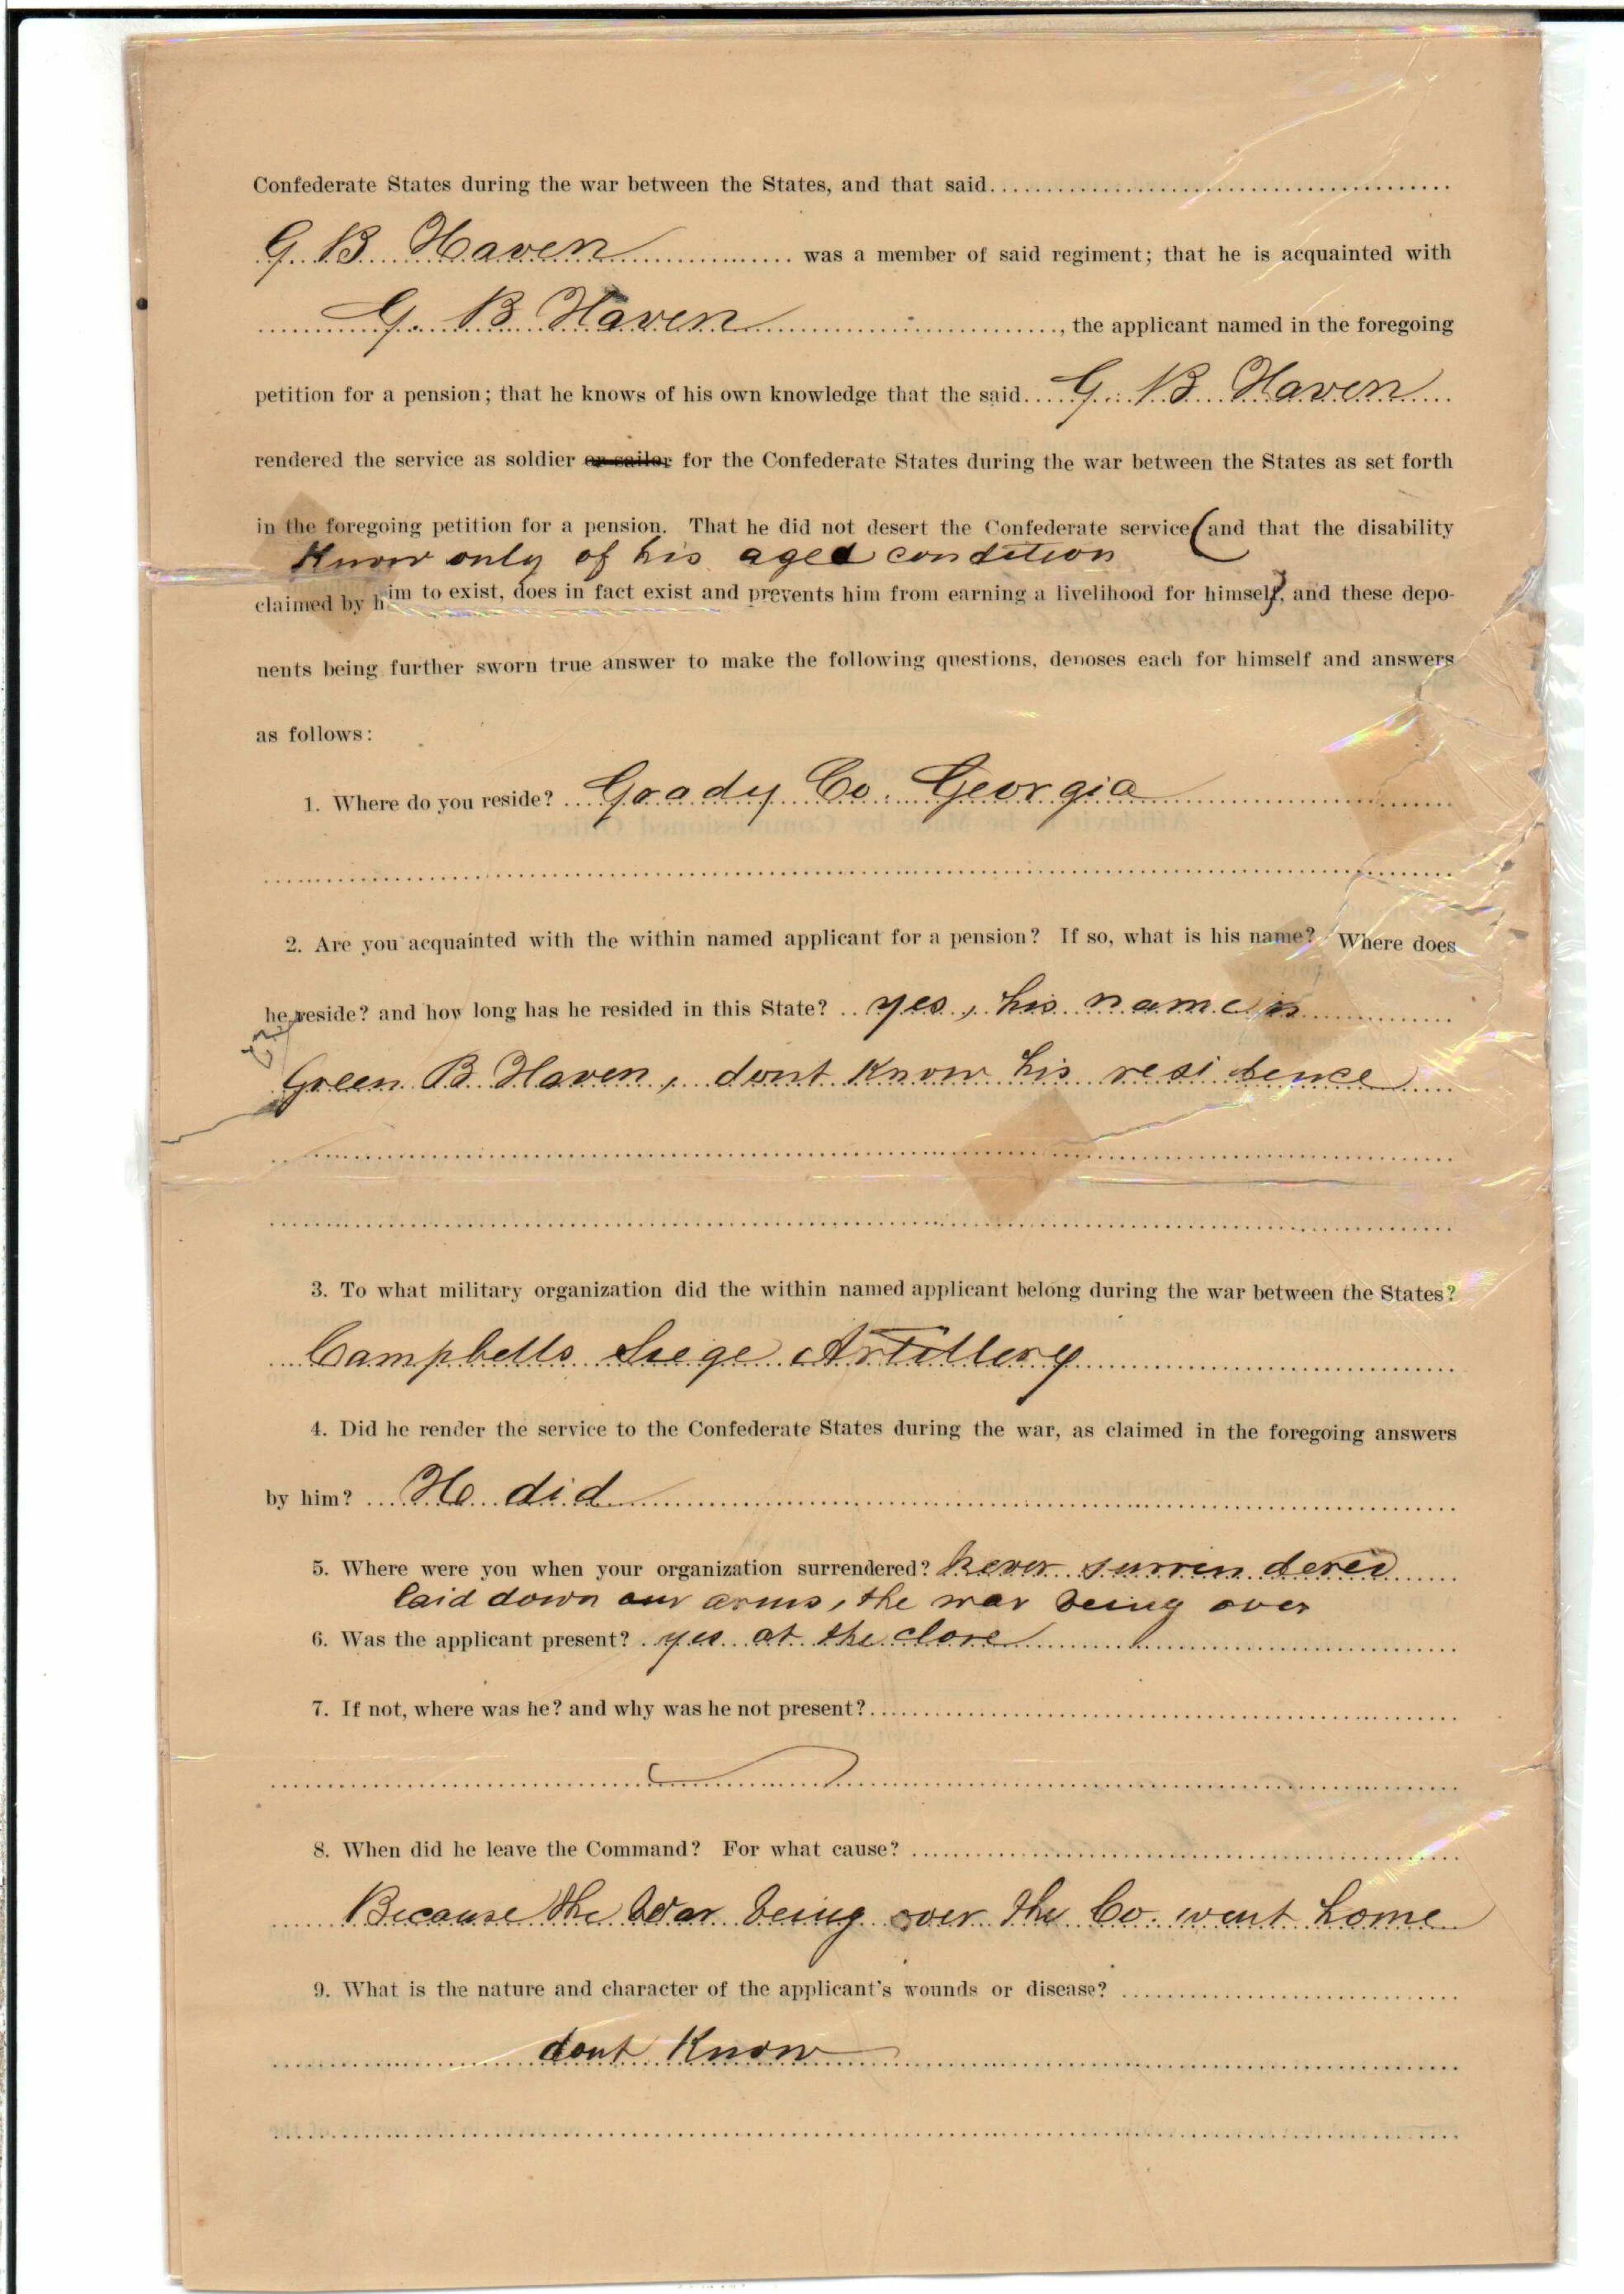 Confederate States during the war between the States, and that said
G. B. Haven was a member of said regiment; that he is acquainted with
G. B Haven, the applicant named in the foregoing
petition for a pension; that he knows of his own knowledge that the said G. B Haven
rendered the service as soldier or sailor for the Confederate States during the war between the States as set forth
in the foregoing petition for a pension. That he did not desert the Confederate service (and that the disability
Know only of his aged condition
claimed by him to exist, does in fact exist and prevents him from earning a livelihood for himself), and these depo-
nents being further sworn true answer to make the following questions, deposes each for himself and answers
as follows:
1. Where do you reside? Grady Co. Georgia
2. Are you acquainted with the within named applicant for a pension? If so, what is his name? Where does
he reside? and how long has he resided in this State? yes, his name is
Green B. Haven, dont Know his residence
3. To what military organization did the within named applicant belong during the war between the States?
Campbells Siege Artillery
4. Did he render the service to the Confederate States during the war, as claimed in the foregoing answers
by him? He did
5. Where were you when your organization surrendered? Never surrendered
laid down our arms, the war being over
6. Was the applicant present? yes at the close
7. If not, where was he? and why was he not present?
8. When did he leave the Command? For what cause?
Because the War being over the Co. went home
9. What is the nature and character of the applicant's wounds or disease?
dont Know